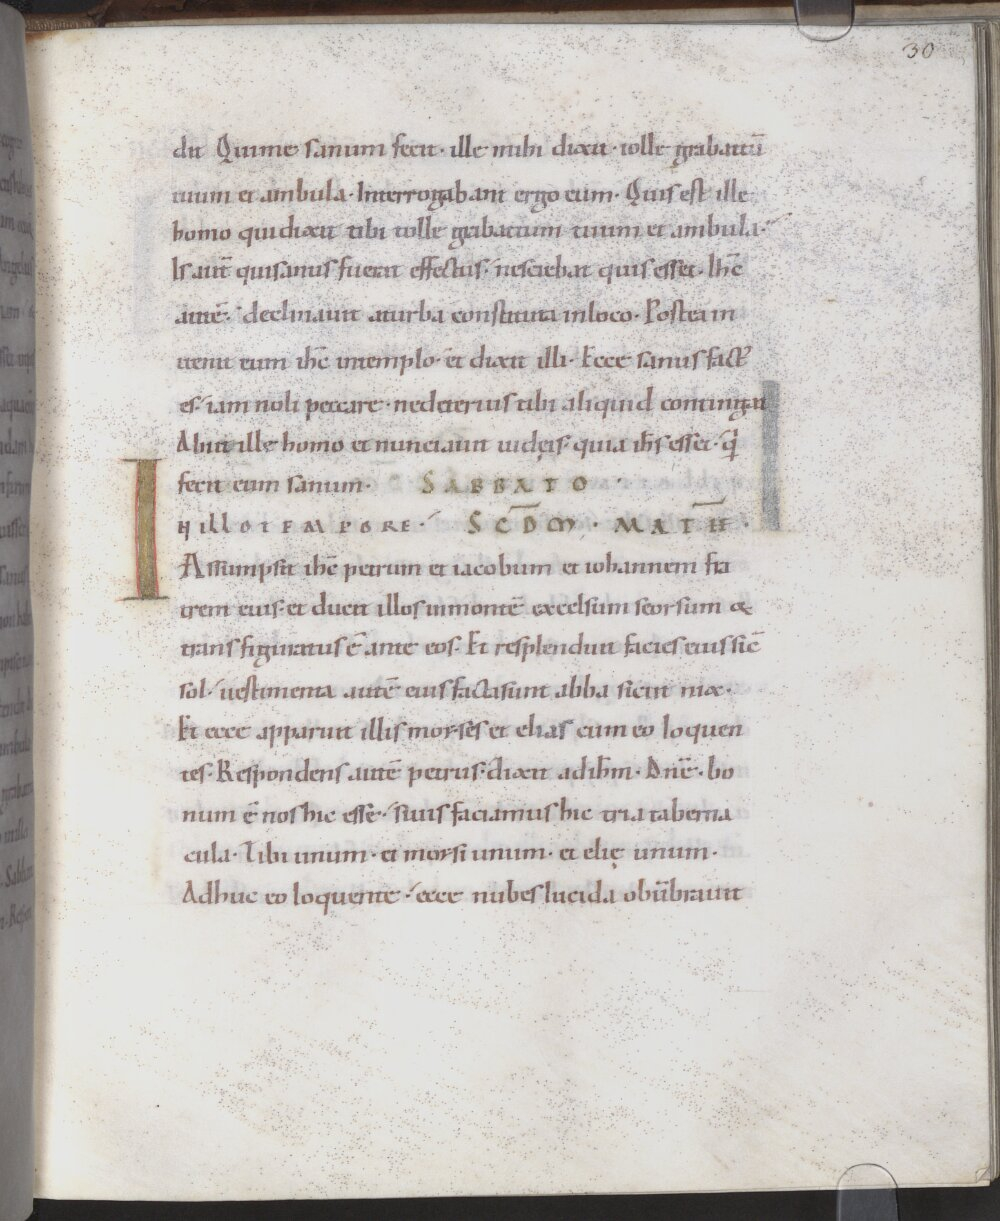 30
dit Qui me sanum fecit · ille mihi dixit · tolle grabattũ
tuum et ambula · Interrogabant ergo eum · Quis est ille
homo qui dixit tibi tolle grabattum tuum et ambula ·
Is autẽ qui sanus fuerat effectus · nesciebat quis esset · Ihc̄
autẽ · declinavit a turba constituta in loco · Postea in
venit eum ihc̄ in templo · et dixit illi · Ecce sanus fact᾽
es · iam noli peccare · ne deterius tibi aliquid contingat
Abiit ille homo et nunciavit iudęis · quia ihs̄ esset · q̄
fecit eum sanum · SABBATO
IN illO TEMPORE · SCD̄M · MATH̄ ·
Assumpsit ihc̄ petrum et iacobum et iohannem fra
trem eius · et ducit illos in montẽ excelsum seorsum &
transfiguratus ẽ ante eos · Et resplenduit facies eius sic̄
sol · vestimenta autẽ eius facta sunt alba sicut nix ·
Et ecce apparuit illis moyses et elias cum eo loquen
tes · Respondens autẽ petrus · dixit ad ihm̄ · Dnẽ · bo
num ẽ nos hic esse · si vis faciamus hic tria taberna
cula · Tibi unum · et moysi unum · et elię unum ·
Adhuc eo loquente · ecce nubes lucida obũbravit